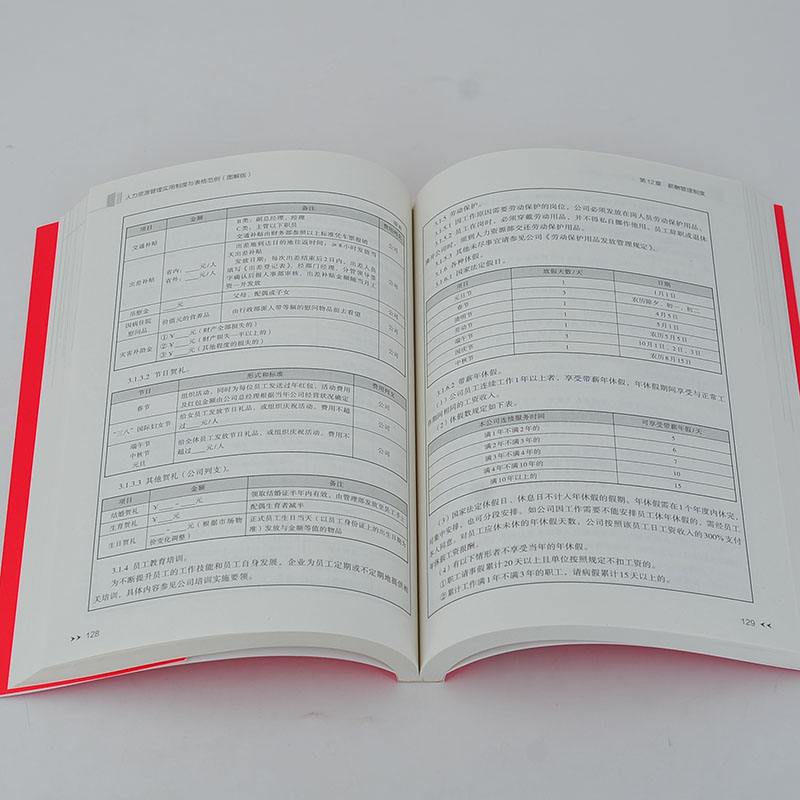 人力资源管理实用制度与表格范例（图解版）
项目 金额 备注
交通补贴 B类：副总经理、经理
C类：主管以下职员
交通补贴由财务部参照以上标准凭车票报销 公司
出差补贴 省内：____元/人
省外：____元/人
出差地到达目的地往返时间，≥8小时发放当
天出差补贴
发放日期：每次出差结束后2日内，出差人员
填写《出差登记表》，经部门经理、分管领导签
字确认后报人事部审核，出差补贴金额随当月工
资一并发放 公司
吊慰金 ____元 父母、配偶或子女
因病住院
慰问品 价值元的营养品 由行政部派人带等额的慰问物品前去看望 公司
灾害补助金 ①￥____元（财产全部损失的）
②￥____元（财产损失一半以上的）
③￥____元（其他程度的损失的） 公司
3.1.3.2 节日贺礼。
节日 形式和标准 费用列支
春节 组织活动，同时为每位员工发送过年红包，活动费用
及红包金额由公司总经理根据当年公司经营状况确定 公司
“三八”国际妇女节 给女员工发放节日礼品，或组织庆祝活动，费用不超
过____元/人 公司
端午节
中秋节
元旦 给全体员工发放节日礼品，或组织庆祝活动，费用不
超过____元/人 公司
3.1.3.3 其他贺礼（公司列支）。
项目 金额 备注
结婚贺礼 ￥____元 领取结婚证半年内有效，由管理部发放至员工手上
生育贺礼 ￥____元 配偶生育者减半
生日贺礼 ____～____元（根据市场物
价变化调整） 正式员工生日当天（以员工身份证上的出生日期为
准）发放与金额等值的物品
3.1.4 员工教育培训。
为不断提升员工的工作技能和员工自身发展，企业为员工定期或不定期地提供相
关培训，具体内容参见公司培训实施要领。
128
第12章 薪酬管理制度
3.1.5 劳动保护。
3.1.5.1 因工作原因需要劳动保护的岗位，公司必须发放在岗人员劳动保护用品。
3.1.5.2 员工在岗时，必须穿戴劳动用品，并不得私自挪作他用。员工辞职或退休
离开公司时，须到人力资源部交还劳动保护用品。
3.1.5.3 其他未尽事宜请参见公司《劳动保护用品发放管理规定》。
3.1.6 各种休假。
3.1.6.1 国家法定假日。
项目 放假天数/天 日期
元旦节 1 1月1日
春节 3 农历除夕、初一、初二
清明节 1 4月5日
劳动节 1 5月1日
端午节 1 农历5月5日
国庆节 3 10月1日、2日、3日
中秋节 1 农历8月15日
3.1.6.2 带薪年休假。
（1）公司员工连续工作1年以上者，享受带薪年休假，年休假期间享受与正常工
作期间相同的工资收入。
（2）休假数规定如下表。
本公司连续服务时间 可享受带薪年假/天
满1年不满2年的 5
满2年不满3年的 6
满3年不满4年的 7
满4年不满10年的 10
满10年以上的 15
（3）国家法定休假日、休息日不计入年休假的假期。年休假需在1个年度内休完，
可集中安排，也可分段安排。如公司因工作需要不能安排员工休年休假的，需经员工
本人同意，对员工应休未休的年休假天数，公司按照该员工日工资收入的300%支付
年休假工资报酬。
（4）有以下情形者不享受当年的年休假。
①职工请事假累计20天以上且单位按照规定不扣工资的。
②累计工作满1年不满3年的职工，请病假累计15天以上的。
129